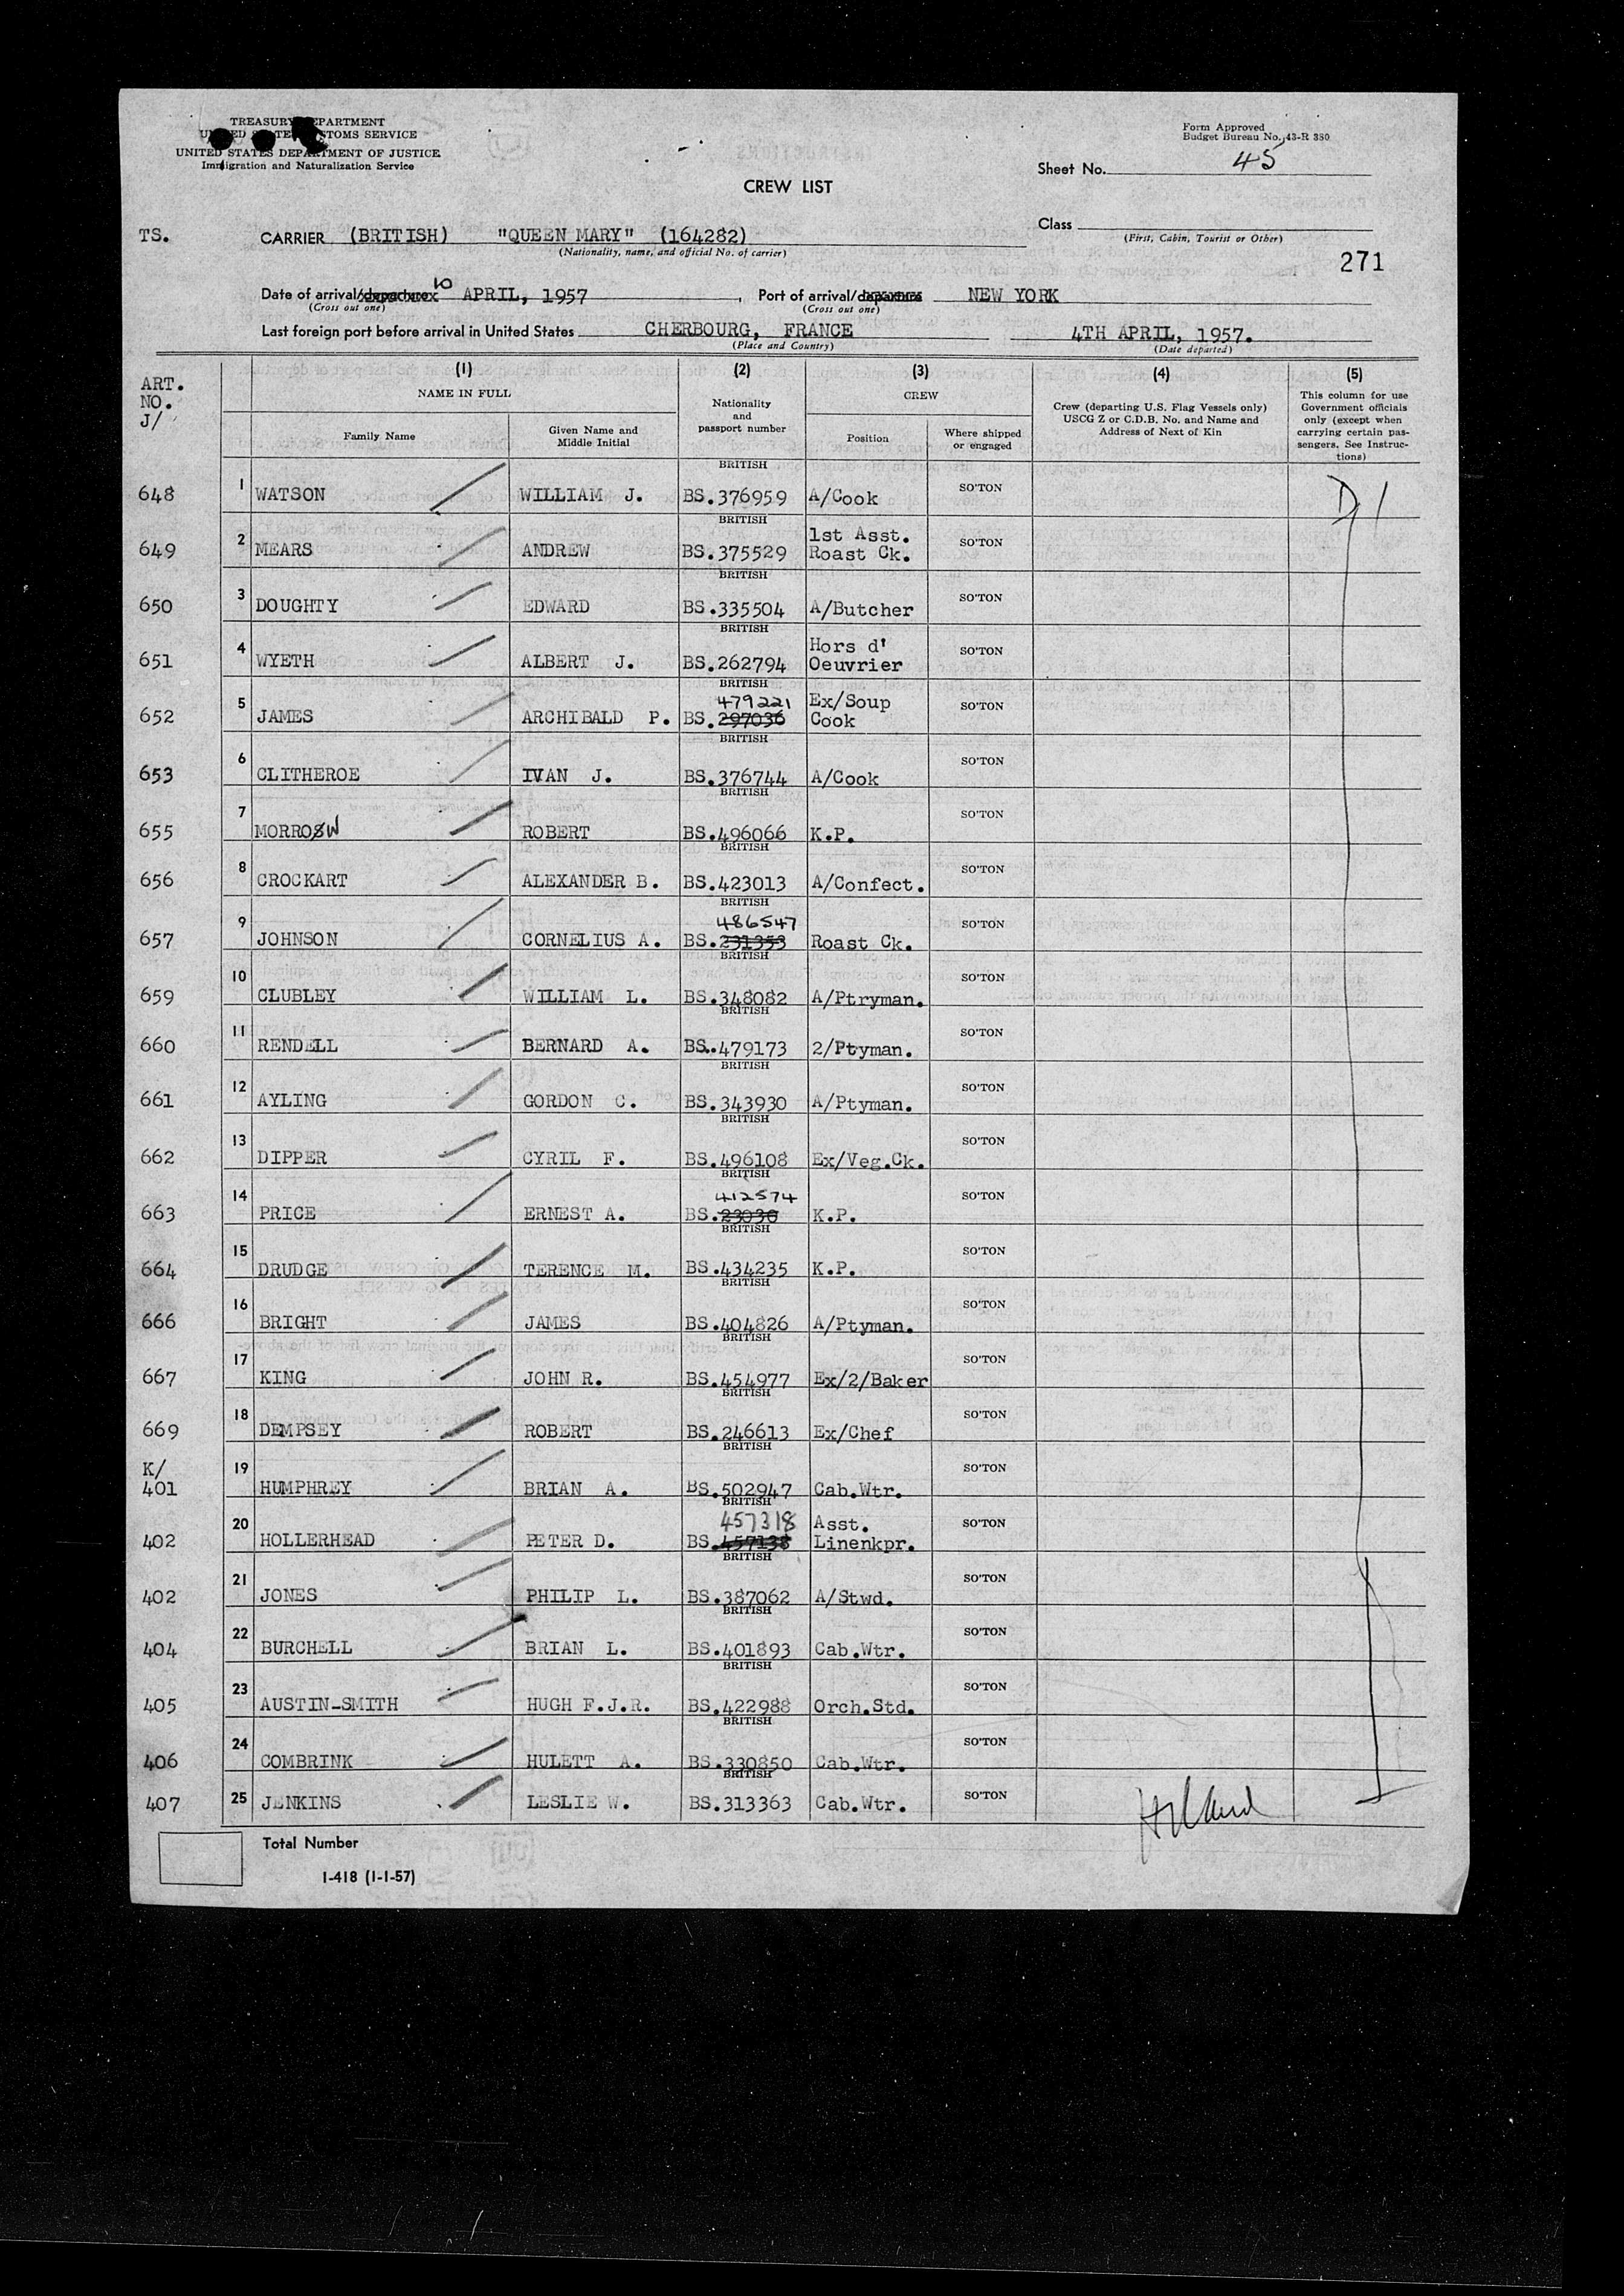 TREASURY DEPARTMENT
UNITED STATES CUSTOMS SERVICE
UNITED STATES DEPARTMENT OF JUSTICE
Immigration and Naturalization Service
Form Approved
Budget Bureau No. 43-R 380
Sheet No. 45
CREW LIST
Class
(First, Cabin, Tourist or Other)
TS. CARRIER (BRITISH) "QUEEN MARY" (164282)
(Nationality, name, and official No. of carrier)
271
Date of arrival/departure 10 APRIL, 1957, Port of arrival/departure NEW YORK
(Cross out one) (Cross out one)
Last foreign port before arrival in United States CHERBOURG, FRANCE 4TH APRIL, 1957.
(Place and Country) (Date departed)
ART. NO. J/
(1) NAME IN FULL
Family Name
Given Name and Middle Initial
(2) Nationality and passport number
(3) CREW
Position
Where shipped or engaged
(4) Crew (departing U.S. Flag Vessels only) USCG Z or C.D.B. No. and Name and Address of Next of Kin
(5) This column for use Government officials only (except when carrying certain passengers. See Instructions)
648 1 WATSON WILLIAM J. BRITISH BS.376959 A/Cook SO'TON D1
649 2 MEARS ANDREW BRITISH BS.375529 1st Asst. Roast Ck. SO'TON
650 3 DOUGHTY EDWARD BRITISH BS.335504 A/Butcher SO'TON
651 4 WYETH ALBERT J. BRITISH BS.262794 Hors d' Oeuvrier SO'TON
652 5 JAMES ARCHIBALD P. BRITISH 479221 BS.297036 Ex/Soup Cook SO'TON
653 6 CLITHEROE IVAN J. BRITISH BS.376744 A/Cook SO'TON
655 7 MORROW ROBERT BRITISH BS.496066 K.P. SO'TON
656 8 CROCKART ALEXANDER B. BRITISH BS.423013 A/Confect. SO'TON
657 9 JOHNSON CORNELIUS A. BRITISH 486547 BS.231353 Roast Ck. SO'TON
659 10 CLUBLEY WILLIAM L. BRITISH BS.348082 A/Ptryman. SO'TON
660 11 RENDELL BERNARD A. BRITISH BS..479173 2/Ptyman. SO'TON
661 12 AYLING GORDON C. BRITISH BS.343930 A/Ptyman. SO'TON
662 13 DIPPER CYRIL F. BRITISH BS.496108 Ex/Veg.Ck. SO'TON
663 14 PRICE ERNEST A. BRITISH 412574 BS.23036 K.P. SO'TON
664 15 DRUDGE TERENCE M. BRITISH BS.434235 K.P. SO'TON
666 16 BRIGHT JAMES BRITISH BS.404826 A/Ptyman. SO'TON
667 17 KING JOHN R. BRITISH BS.454977 Ex/2/Baker SO'TON
669 18 DEMPSEY ROBERT BRITISH BS.246613 Ex/Chef SO'TON
K/ 401 19 HUMPHREY BRIAN A. BRITISH BS.502947 Cab.Wtr. SO'TON
402 20 HOLLERHEAD PETER D. BRITISH 457318 BS.457138 Asst. Linenkpr. SO'TON
402 21 JONES PHILIP L. BRITISH BS.387062 A/Stwd. SO'TON
404 22 BURCHELL BRIAN L. BRITISH BS.401893 Cab.Wtr. SO'TON
405 23 AUSTIN-SMITH HUGH F.J.R. BRITISH BS.422988 Orch.Std. SO'TON
406 24 COMBRINK HULETT A. BRITISH BS.330850 Cab.Wtr. SO'TON
407 25 JENKINS LESLIE W. BRITISH BS.313363 Cab.Wtr. SO'TON
Total Number
I-418 (1-1-57)